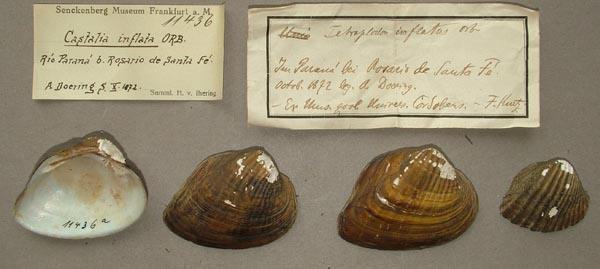 Senckenberg Museum Frankfurt a. M.
11436
Castalia inflata ORB.
Rio Paraná b. Rosario de Santa Fé.
A. Doering S. X. 1872.
Samml. H. v. Ihering
Unio Tetraplodon inflatus Orb.
Im Paraná bei Rosario de Santa Fé
Octob. 1872 leg. A. Doering.
Ex Mus. zool. Univers.
11436a